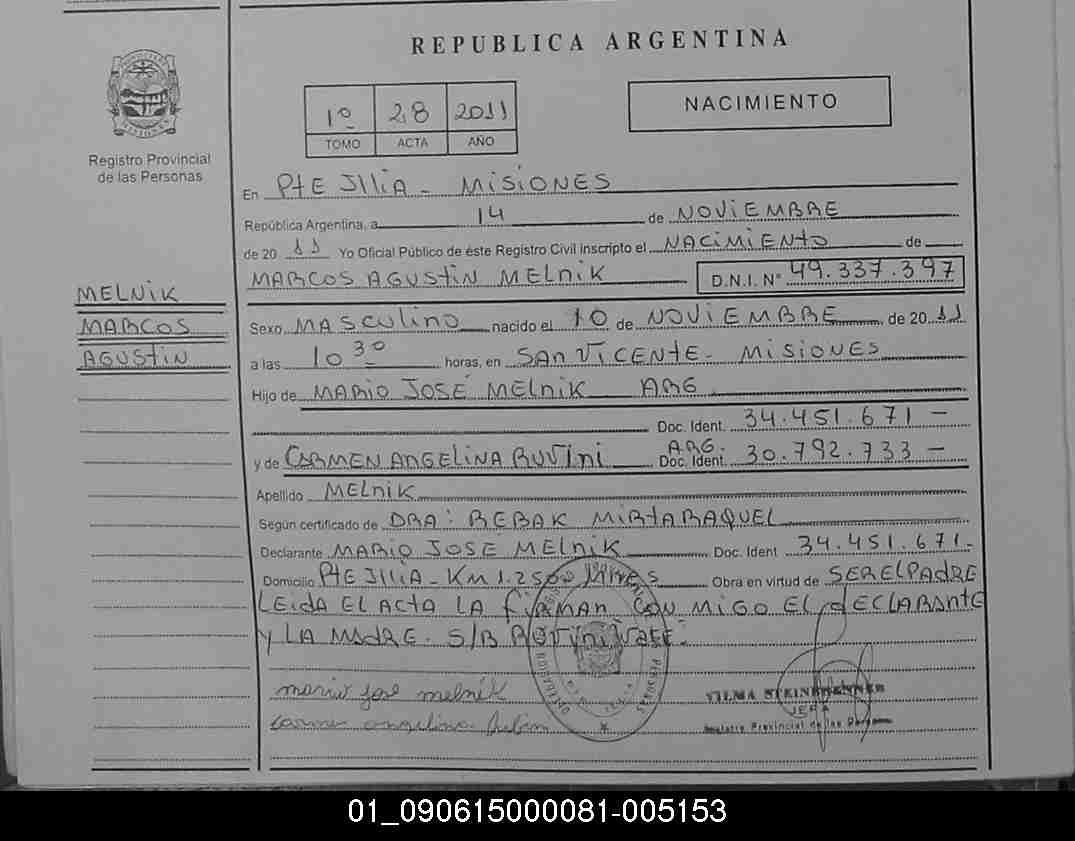 REPUBLICA ARGENTINA
1º 28 2011
TOMO ACTA AÑO
NACIMIENTO
MISIONES
Registro Provincial
de las Personas
En PtE JlliA - MISIONES
República Argentina, a 14 de NOVIEMBRE
de 20 11 Yo Oficial Público de éste Registro Civil inscripto el NACIMIENTO de
MARCOS AGUSTIN MELNIK D.N.I. N° 49.337.397
MELNIK
MARCOS
AGUSTIN
Sexo MASCULINO nacido el 10 de NOVIEMBRE de 20 11
a las 10 30 horas, en SAN VICENTE - MISIONES
Hijo de MARIO JOSÉ MELNIK ARG
Doc. Ident. 34.451.671 -
y de CARMEN ANGELINA RUVINI ARG. Doc. Ident. 30.792.733 -
Apellido MELNIK
Según certificado de DRA: REBAK MIRTA RAQUEL
Declarante MARIO JOSÉ MELNIK Doc. Ident 34.451.671-
Domicilio PtE JlliA - KM 1.2500 Obra en virtud de SER EL PADRE
LEIDA EL ACTA LA FIRMAN CONMIGO EL DECLARANTE
Y LA MADRE. S/B RUVINI VALE.
mario jose melnik
carmen angelina
VILMA STEINBRENNER
JEFA
Registro Provincial de las Personas
01_090615000081-005153